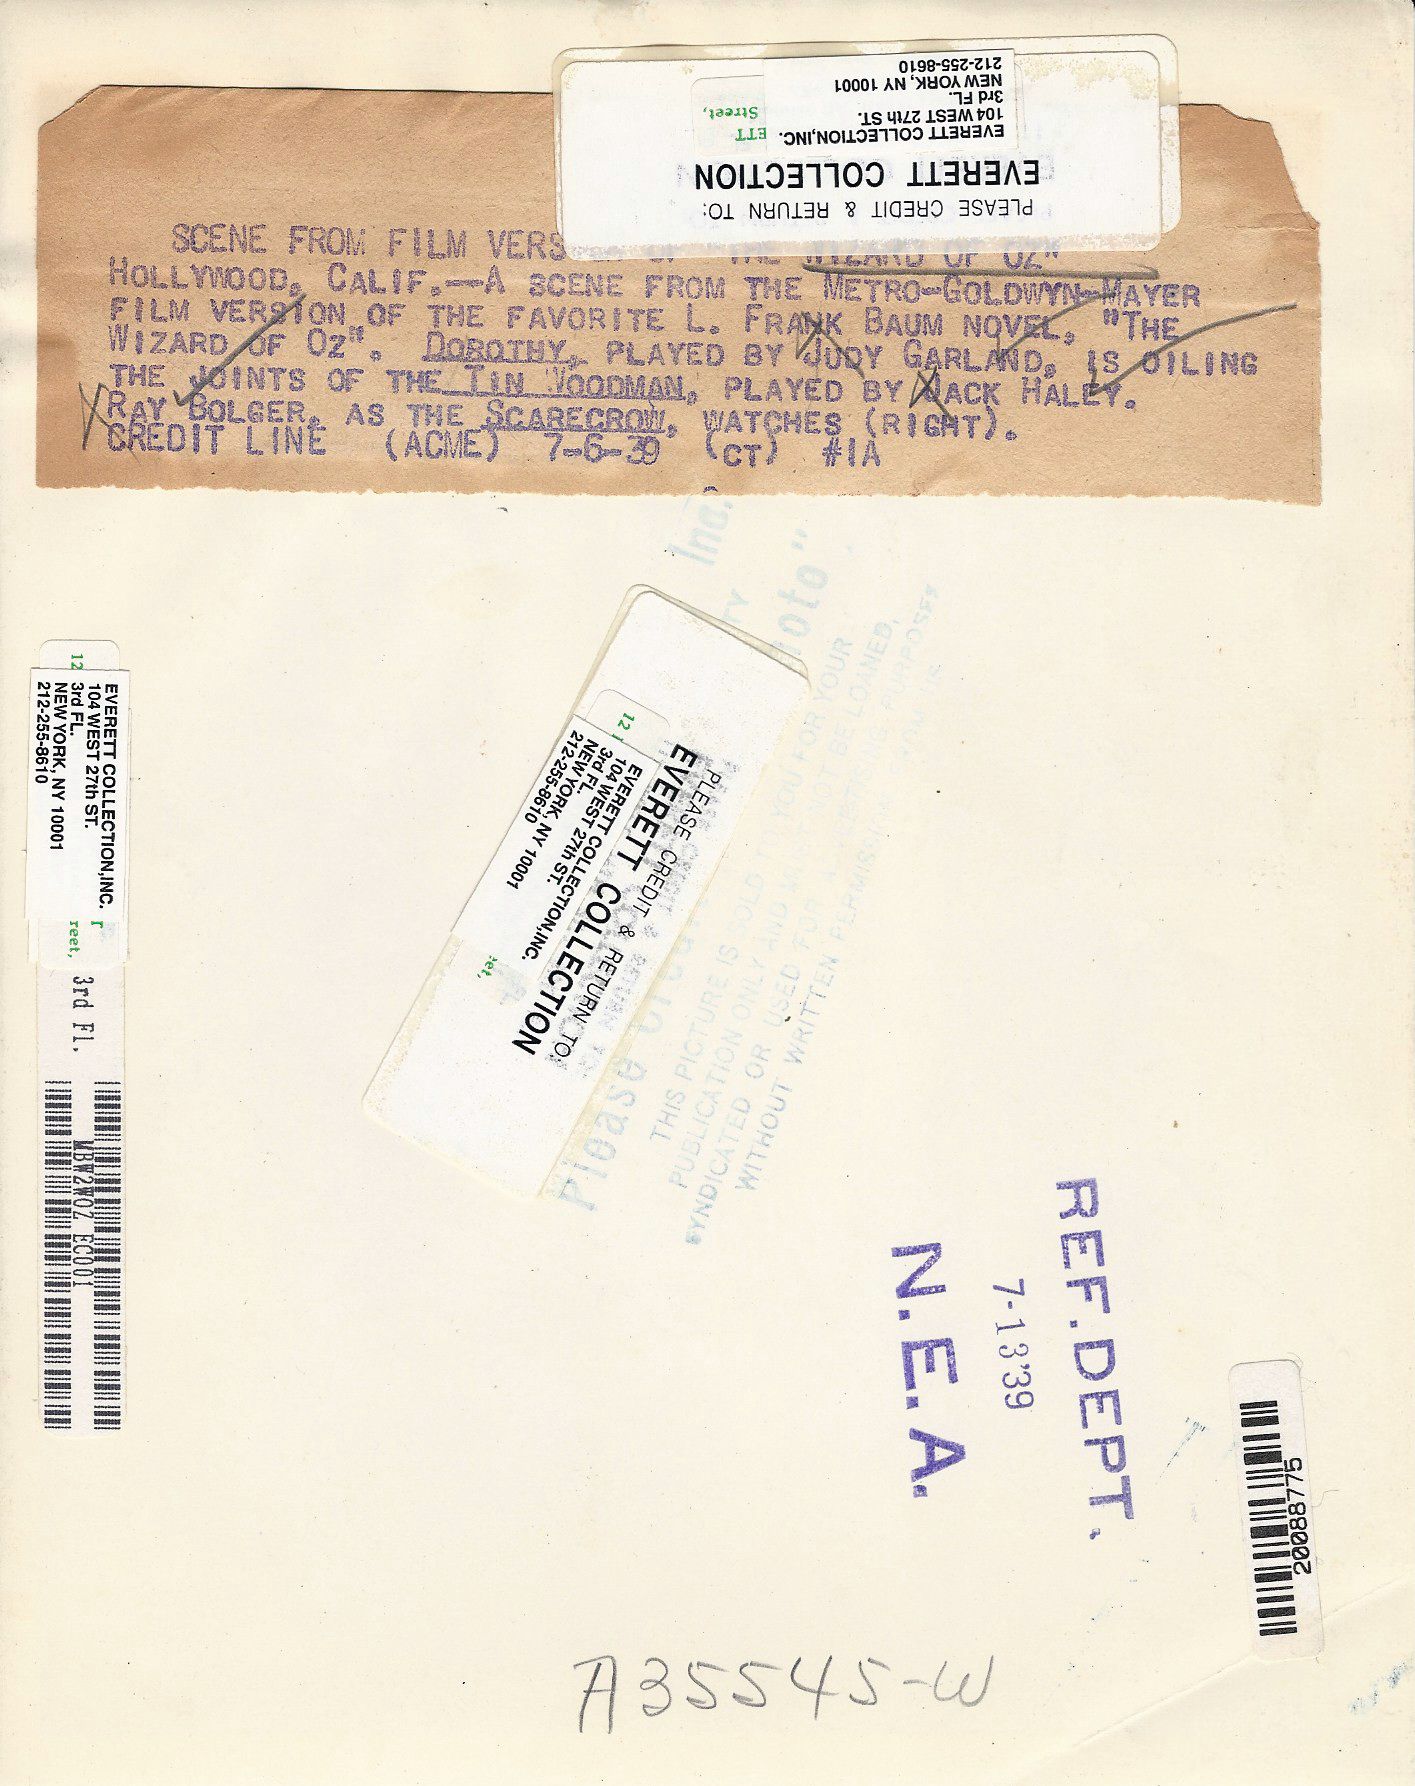 212-255-8610
NEW YORK, NY 10001
3rd FL.
104 WEST 27th ST.
EVERETT COLLECTION,INC.
Street,
ETT
EVERETT COLLECTION
PLEASE CREDIT & RETURN TO:
SCENE FROM FILM VERS OF "THE WIZARD OF OZ"
HOLLYWOOD, CALIF.—A SCENE FROM THE METRO-GOLDWYN-MAYER
FILM VERSION OF THE FAVORITE L. FRANK BAUM NOVEL, "THE
WIZARD OF OZ". DOROTHY, PLAYED BY JUDY GARLAND, IS OILING
THE JOINTS OF THE TIN WOODMAN, PLAYED BY JACK HALEY.
RAY BOLGER, AS THE SCARECROW, WATCHES (RIGHT).
CREDIT LINE (ACME) 7-6-39 (CT) #1A
EVERETT COLLECTION,INC.
104 WEST 27th ST.
3rd FL.
NEW YORK, NY 10001
212-255-8610
12
reet,
3rd Fl.
MBW2WOZ EC001
PLEASE CREDIT & RETURN TO:
EVERETT COLLECTION
EVERETT COLLECTION,INC.
104 WEST 27th ST.
3rd FL.
NEW YORK, NY 10001
212-255-8610
12
Inc.
Please
THIS PICTURE IS SOLD YOU FOR YOUR
PUBLICATION ONLY AND BE LOANED,
SYNDICATED OR USED FOR PURPOSES
WITHOUT WRITTEN PERMISSION
REF. DEPT.
7-13'39
N.E.A.
20088775
A35545-W